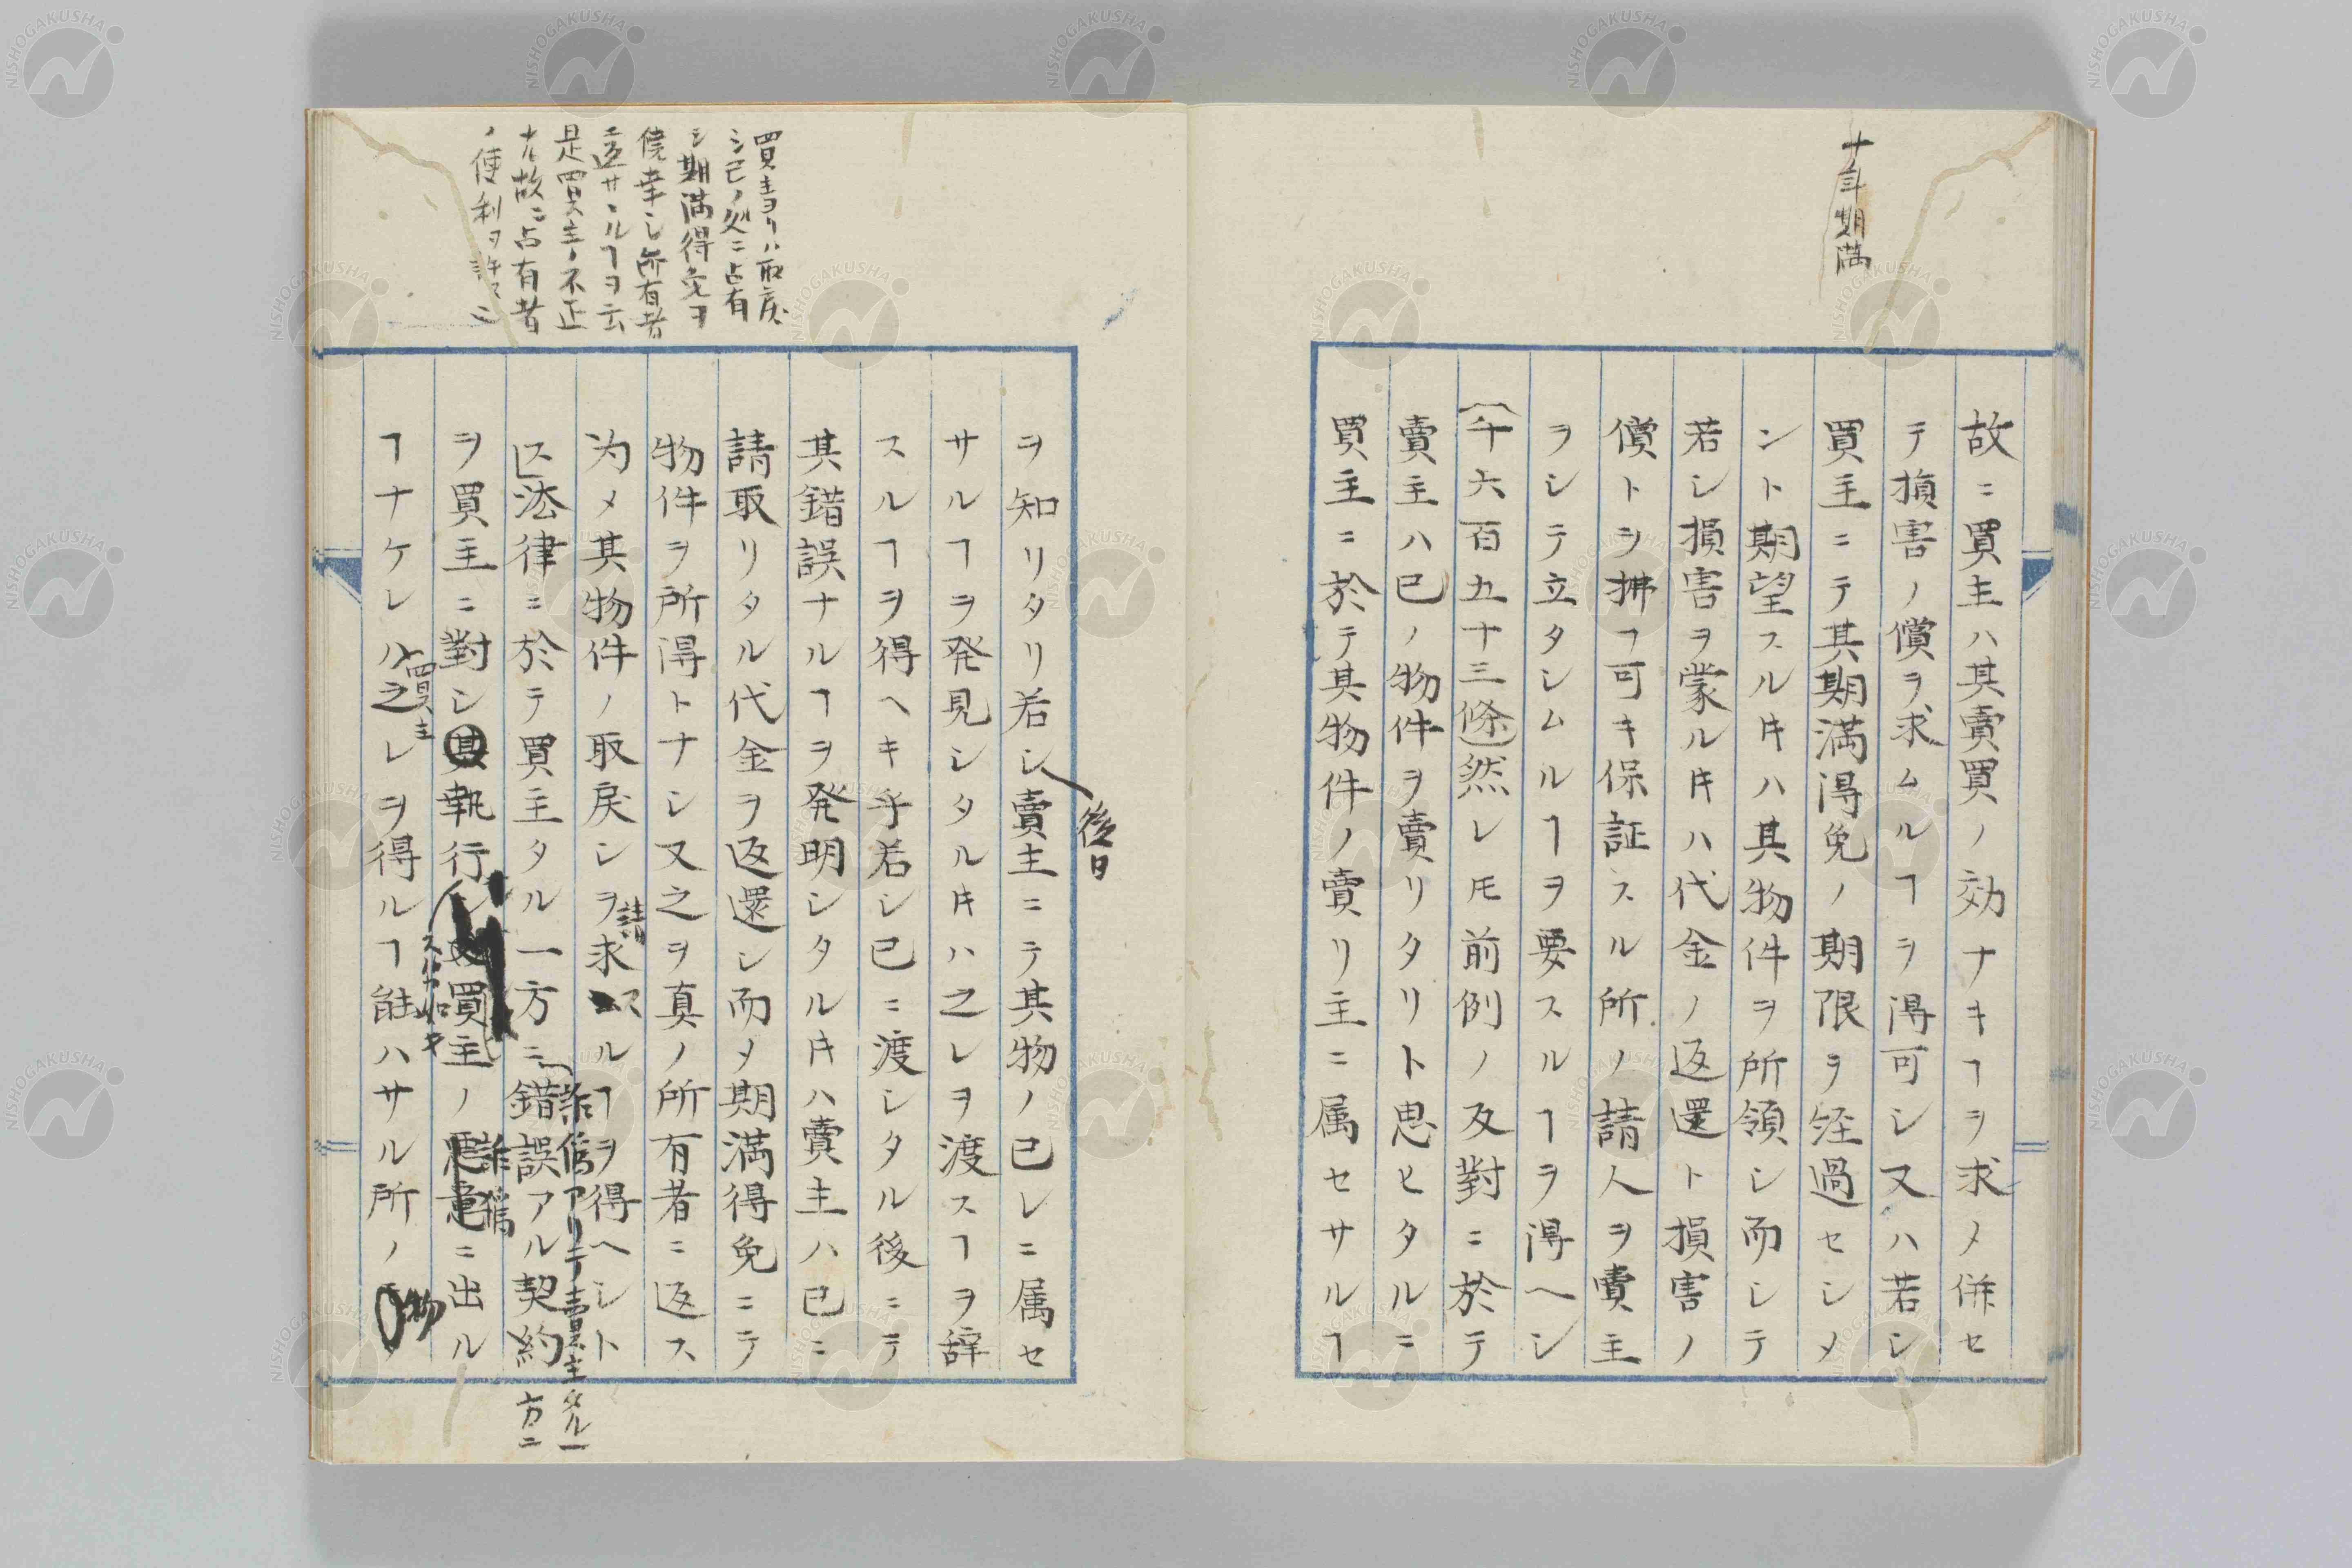 十年期満
故ニ買主ハ其賣買ノ効ナキヿヲ求メ併セ
テ損害ノ償ヲ求ムルヿヲ得可シ又ハ若シ
買主ニテ其期満得免ノ期限ヲ経過セシメ
ント期望スル𪜈ハ其物件ヲ所領シ而シテ
若シ損害ヲ蒙ル𪜈ハ代金ノ返還ト損害ノ
償トヲ拂フ可キ保証スル所ノ請人ヲ賣主
ヲシテ立タシムルヿヲ要スルヿヲ得ヘシ
(千六百五十三條)然レ𪜈前例ノ反對ニ於テ
賣主ハ已ノ物件ヲ賣リタリト思ヒタルニ
買主ニ於テ其物件ノ賣リ主ニ属セサルヿ
ヲ知リタリ若シ賣主ニテ其物ノ已レニ属セ
後日
サルヿヲ発見シタル𪜈ハ之レヲ渡スヿヲ辞
スルヿヲ得ヘキ乎若シ已ニ渡シタル後ニテ
其錯誤ナルヿヲ発明シタル𪜈ハ賣主ハ已ニ
請取リタル代金ヲ返還シ而メ期満得免ニテ
物件ヲ所得トナシ又之ヲ真ノ所有者ニ返ス
為メ其物件ノ取戻シヲ請求スルヿヲ得ヘシト
ス法律ニ於テ買主タル一方ニ錯誤アル契約
詐偽アリテ賣主タル一方ニ
ヲ買主ニ對シ其執行買主ノ悪意ニ出ル
詐偽
ヿナケレハ之レヲ得ルヿ能ハサル所ノ物
買主
買主ヨリハ取戻
シ己ノ処ニ占有
シ期満得免ヲ
僥幸シ所有者
ニ返サヽルヿヲ云
是買主ノ不正
ナル故ニ占有者
ノ便利ヲ許サス